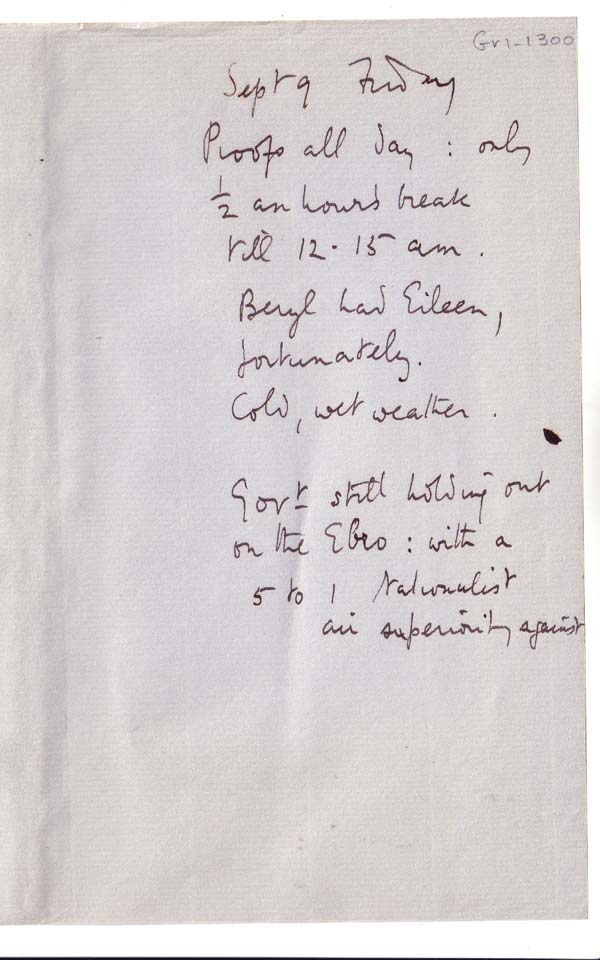 Gr1-1300
Sept 9 Friday
Proofs all day : only
½ an hour's break
till 12.15 am.
Beryl had Eileen,
fortunately.
Cold, wet weather.
Govt still holding out
on the Ebro : with a
5 to 1 Nationalist
air superiority against